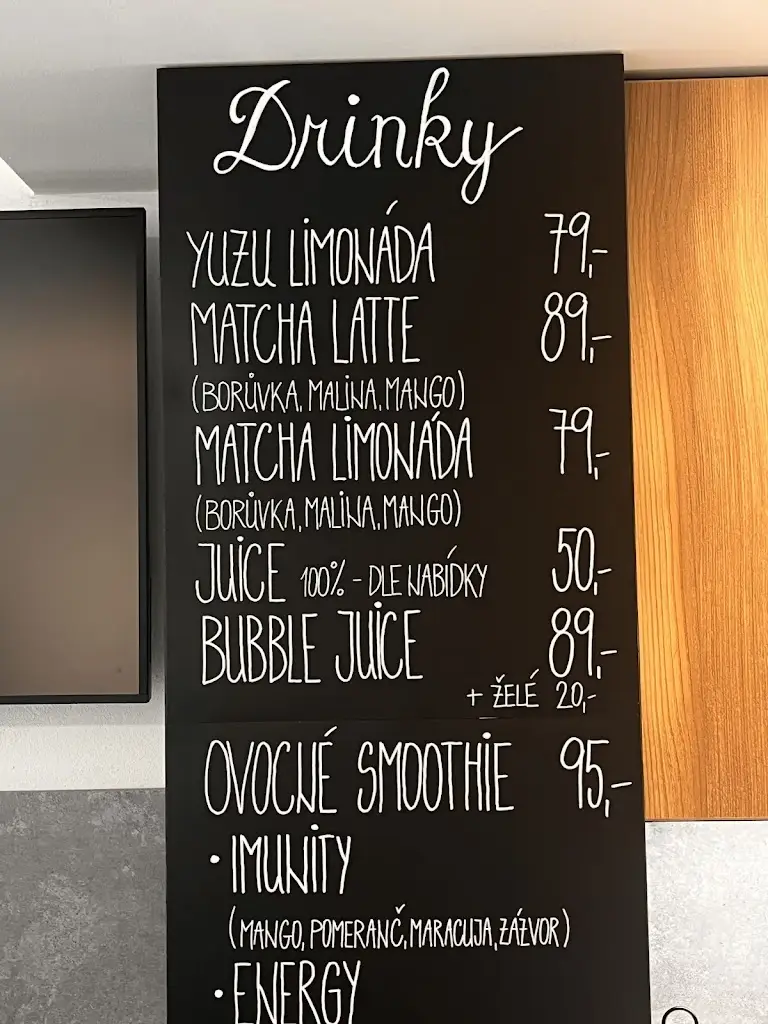 Drinky
YUZU LIMONÁDA 79,-
MATCHA LATTE 89,-
(BORŮVKA, MALINA, MANGO)
MATCHA LIMONÁDA 79,-
(BORŮVKA, MALINA, MANGO)
JUICE 100% - DLE NABÍDKY 50,-
BUBBLE JUICE 89,-
+ ŽELÉ 20,-
OVOCNÉ SMOOTHIE 95,-
• IMUNITY
(MANGO, POMERANČ, MARACUJA, ZÁZVOR)
• ENERGY